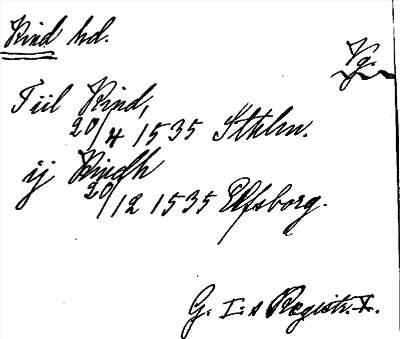 Kind hd.
Vg.
Till Kind,
20/4 1535 Sthlm.
ij Kindh
20/12 1535 Elfsborg.
G. I:s Registr. X.